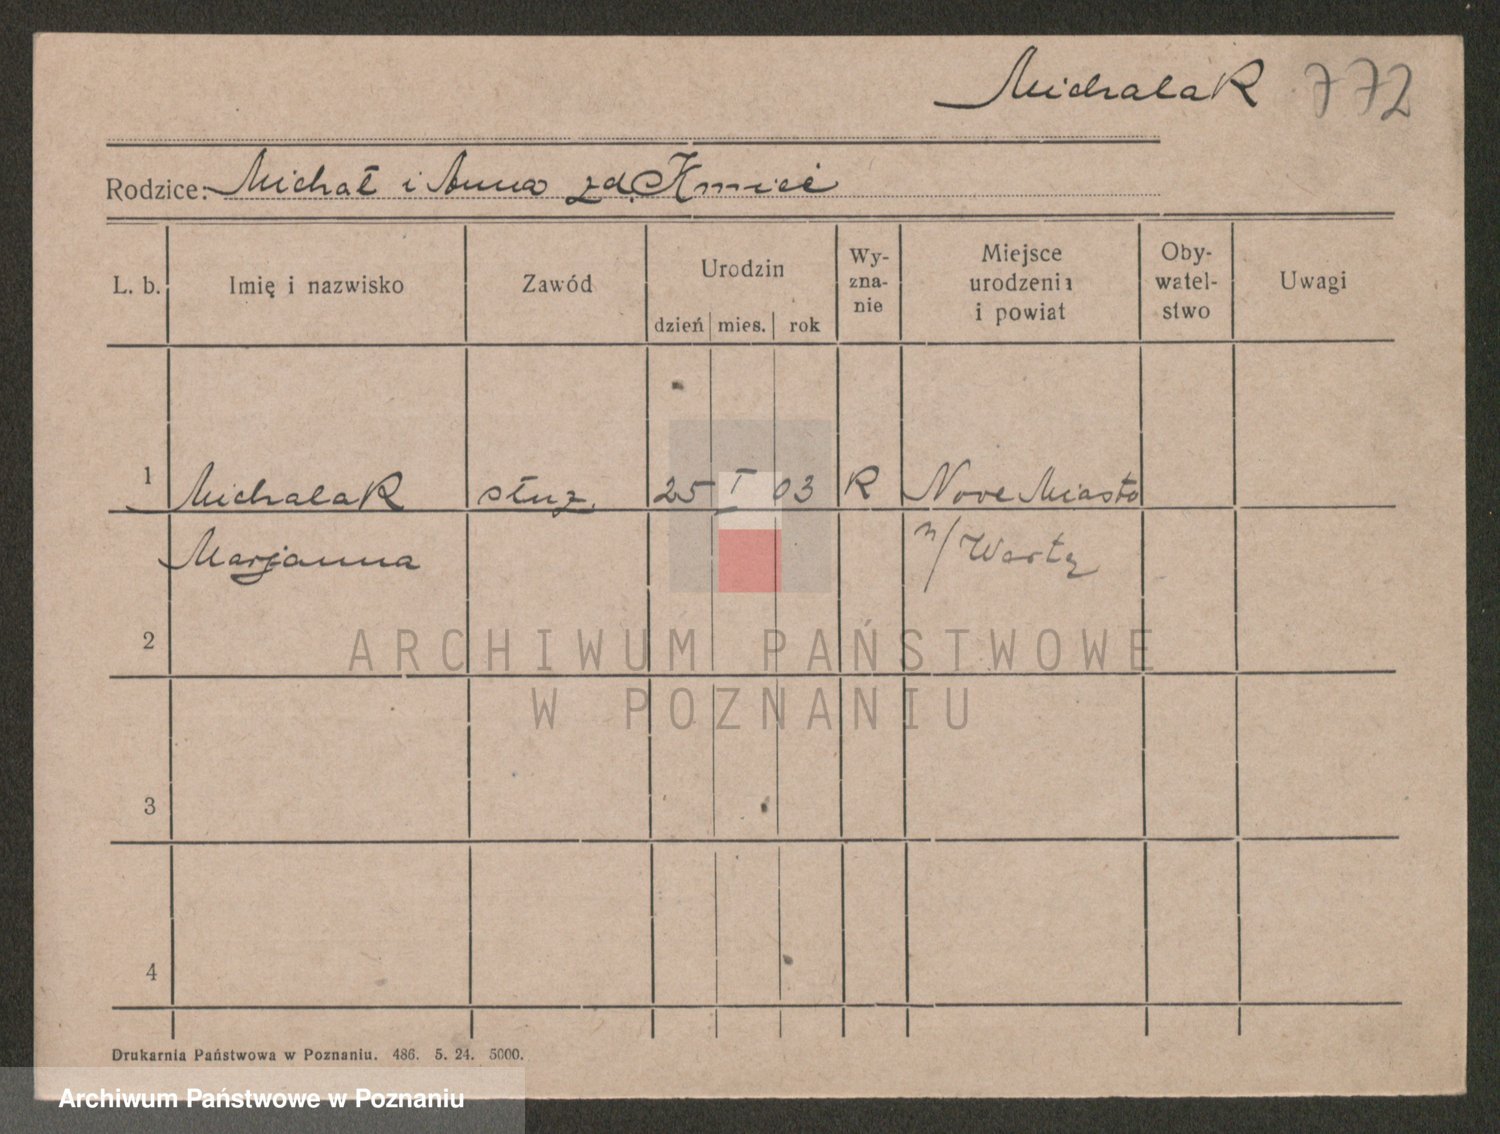 Michalak 772
Rodzice: Michał i Anna zd. Kmieć
L. b. Imię i nazwisko Zawód Urodzin dzień mies. rok Wy-zna-nie Miejsce urodzenia i powiat Oby-watel-stwo Uwagi
1 Michalak służ. 25 I 03 R Nove Miasto
Marjanna n/Wartą
2
ARCHIWUM PAŃSTWOWE
W POZNANIU
3
4
Drukarnia Państwowa w Poznaniu. 486. 5. 24. 5000.
Archiwum Państwowe w Poznaniu